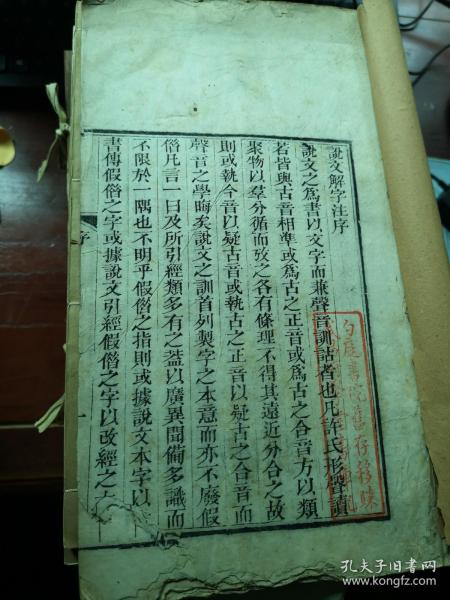 說文解字注序
說文之為書以文字而兼聲音訓詁者也凡許氏形聲讀
若皆與古音相準或為古之正音或為古之合音方以類
聚物以羣分循而攷之各有條理不得其遠近分合之故
則或執今音以疑古音或執古之正音以疑古之合音而
聲音之學晦矣說文之訓首列製字之本意而亦不廢假
俗凡言一曰及所引經類多有之蓋以廣異聞備多識而
不限於一隅也不明乎假俗之指則或據說文本字以
書傳假俗之字或據說文引經假俗之字以改經之
序
孔夫子旧书网
www.kongfz.com